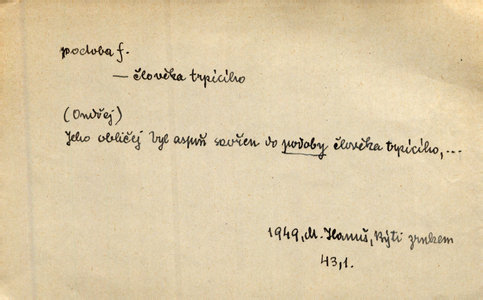 podoba f.
— člověka trpícího
(Ondřej)
Jeho obličej byl aspoň sevřen do podoby člověka trpícího, ...
1949, M. Hanuš, Býti zrnkem
43,1.